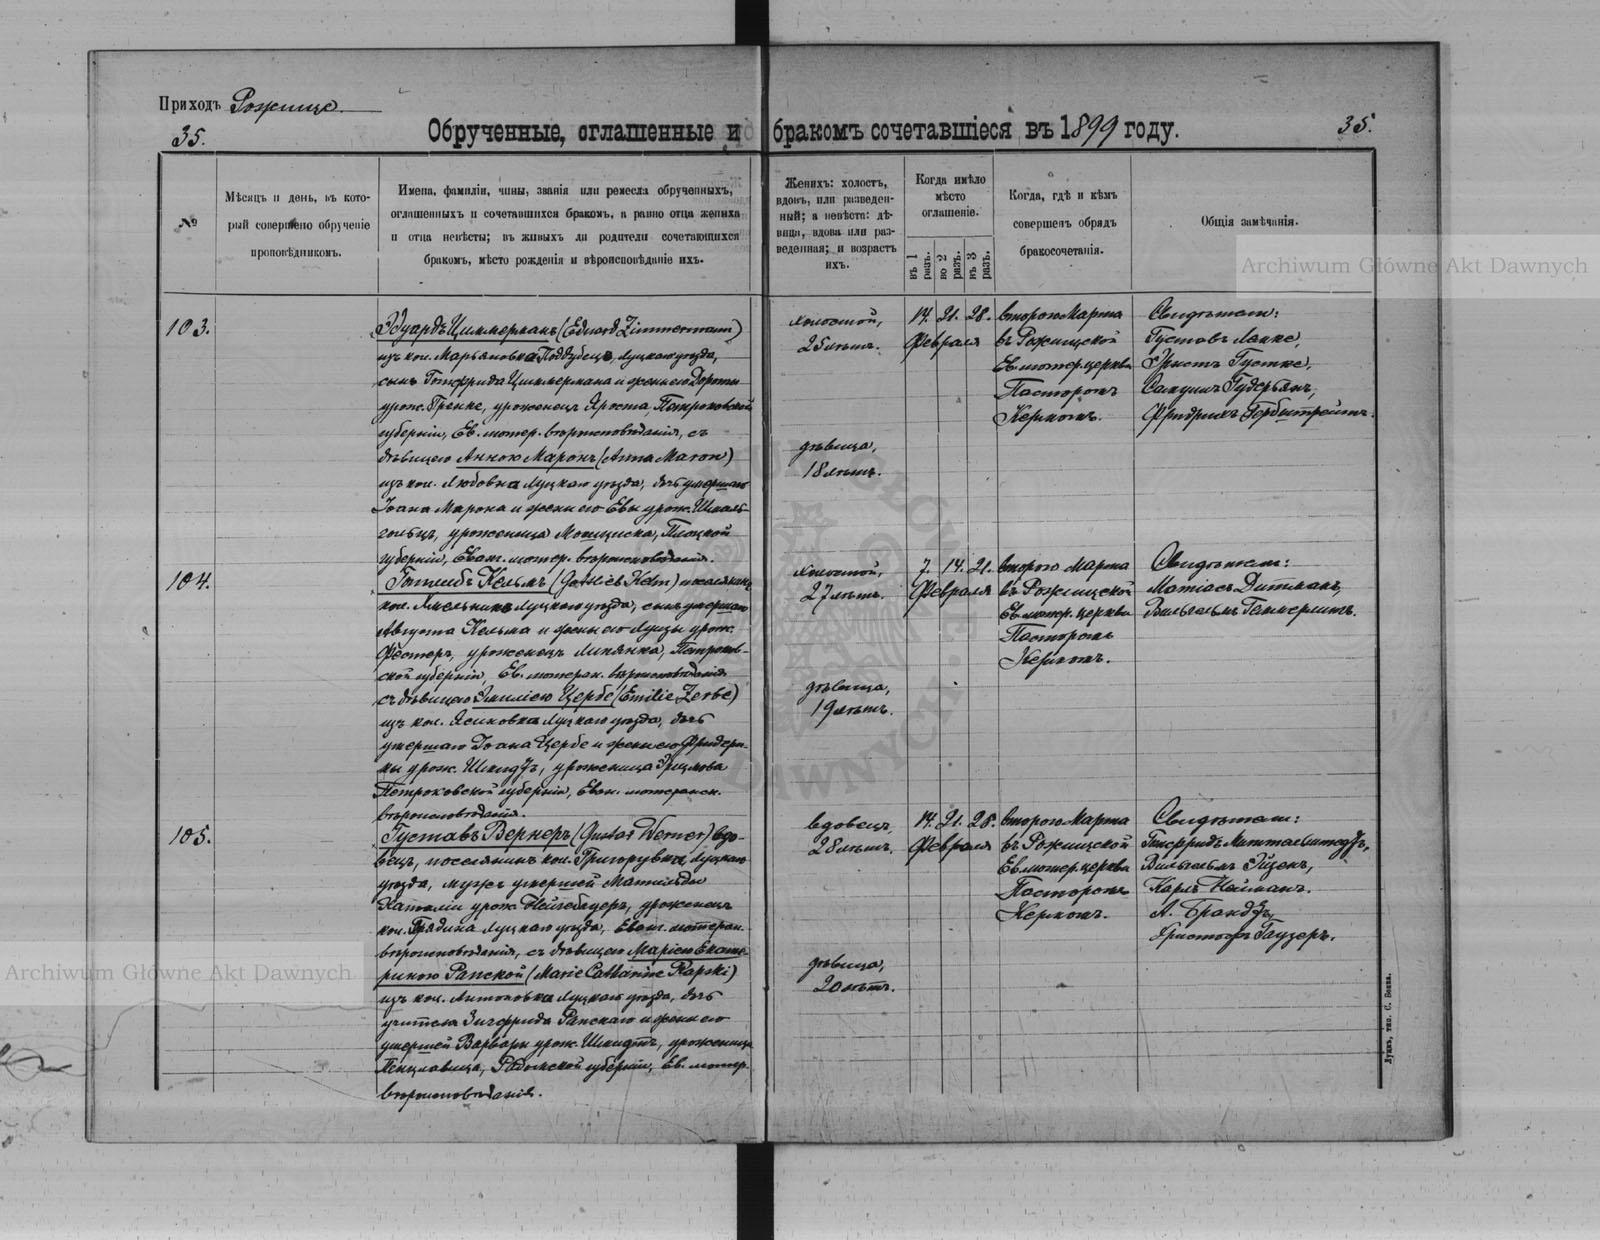 Приходъ Рожище.
35.
Обрученные, оглашенные и бракомъ сочетавшіеся въ 1899 году.
35.
№
Мѣсяцъ и день, въ который совершено обрученіе проповѣдникомъ.
Имена, фамиліи, чины, званія или ремесла обрученныхъ,
оглашенныхъ и сочетавшихся бракомъ, а равно отца жениха
и отца невѣсты; въ живыхъ ли родители сочетающихся
бракомъ, мѣсто рожденія и вѣроисповѣданіе ихъ.
Женихъ: холостъ,
вдовъ, или разведен-
ный; а невѣста: дѣ-
вица, вдова или раз-
веденная; и возрастъ
ихъ.
Когда имѣло
мѣсто
оглашеніе.
въ 1 разъ.
во 2 разъ.
въ 3 разъ.
Когда, гдѣ и кѣмъ
совершенъ обрядъ
бракосочетанія.
Общія замѣчанія.
Archiwum Główne Akt Dawnych
103.
Эдуардъ Циммерманъ (Eduard Zimmermann)
изъ кол. Марьяновка Поддубецъ, Луцкаго уѣзда,
сынъ Готфрида Циммермана и жены его Доротеи
урож. Гренке, уроженецъ Петроковской
губерніи, Ев. лютер. вѣроисповѣданія, съ
дѣвицею Анною Маронъ (Anna Maron)
изъ кол. Любовка Луцкаго уѣзда, дочь умершаго
Іоана Марона и жены его Евы урож.
уроженица Плоцкой
губерніи, Еванг. лютер. вѣроисповѣданія.
холостой,
25 лѣтъ.
дѣвица,
18 лѣтъ.
14. 21. 28.
Февраля
второго Марта
въ Рожищской
Ев. лютер. церкви
Пасторомъ
Кермомъ.
Свидѣтели:
Густавъ Ляпке,
Эрнстъ Густке,
Самуилъ Гудерьянъ,
Фридрихъ
104.
Готлибъ Кельмъ (Gottlieb Kelm) поселянинъ
кол. Хмельникъ Луцкаго уѣзда, сынъ умершаго
Августа Кельма и жены его Луизы урож.
Фёстеръ, уроженецъ Петроков-
ской губерніи, Ев. лютеран. вѣроисповѣданія
съ дѣвицею Эмиліею Цербе (Emilie Zerbe)
изъ кол. Ясиновка Луцкаго уѣзда, дочь
умершаго Іоана Цербе и жены его Фридери-
ки урож. Шмидтъ, уроженица
Петроковской губерніи, Еван. лютеранск.
вѣроисповѣданія.
холостой,
27 лѣтъ.
дѣвица,
19 лѣтъ.
7. 14. 21.
Февраля
второго Марта
въ Рожищской
Ев. лютер. церкви
Пасторомъ
Кермомъ.
Свидѣтели:
Матіасъ Дитманъ,
Вильгельмъ Геммерлингъ.
105.
Густавъ Вернеръ (Gustav Werner) вдо-
вецъ, поселянинъ кол. Григорувка, Луцкаго
уѣзда, мужъ умершей Матильды
Наталіи урож. уроженецъ
кол. Грядина Луцкаго уѣзда, Еванг. лютеран.
вѣроисповѣданія, съ дѣвицею Маріею Екате-
риною Рапской (Marie Catharine Rapski)
изъ кол. Антоновка Луцкаго уѣзда, дочь
учителя Зигфрида Рапскаго и жены его
умершей Варвары урож. Шмидтъ, уроженица
Радомской губерніи, Ев. лютер.
вѣроисповѣданія.
вдовецъ,
28 лѣтъ.
дѣвица,
20 лѣтъ.
14. 21. 28.
Февраля
второго Марта
въ Рожищской
Ев. лютер. церкви
Пасторомъ
Кермомъ.
Свидѣтели:
Готфридъ Миттельштедтъ,
Вильгельмъ Эйценъ,
Карлъ Нейманъ.
А. Брандтъ,
Христофъ Гаузеръ.
Archiwum Główne Akt Dawnych
Луцкъ, тип. С. Бокка.